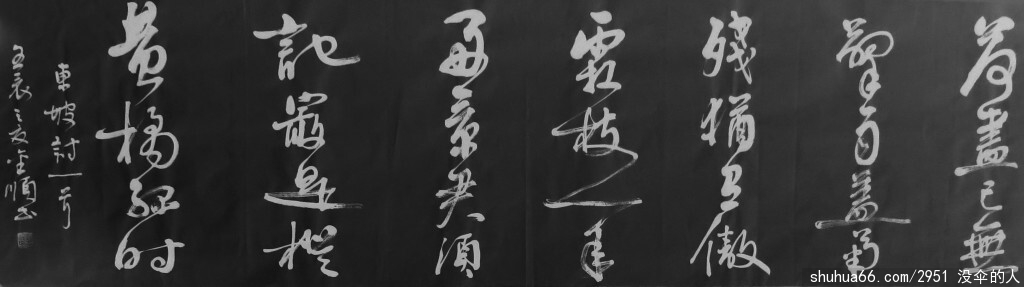 荷盡已無
擎雨蓋菊
殘猶有傲
霜枝一年
好景君須
記最是橙
黄橘緑时
東坡詩一首
壬辰之夏順书
shuhua66.com/2951 没伞的人